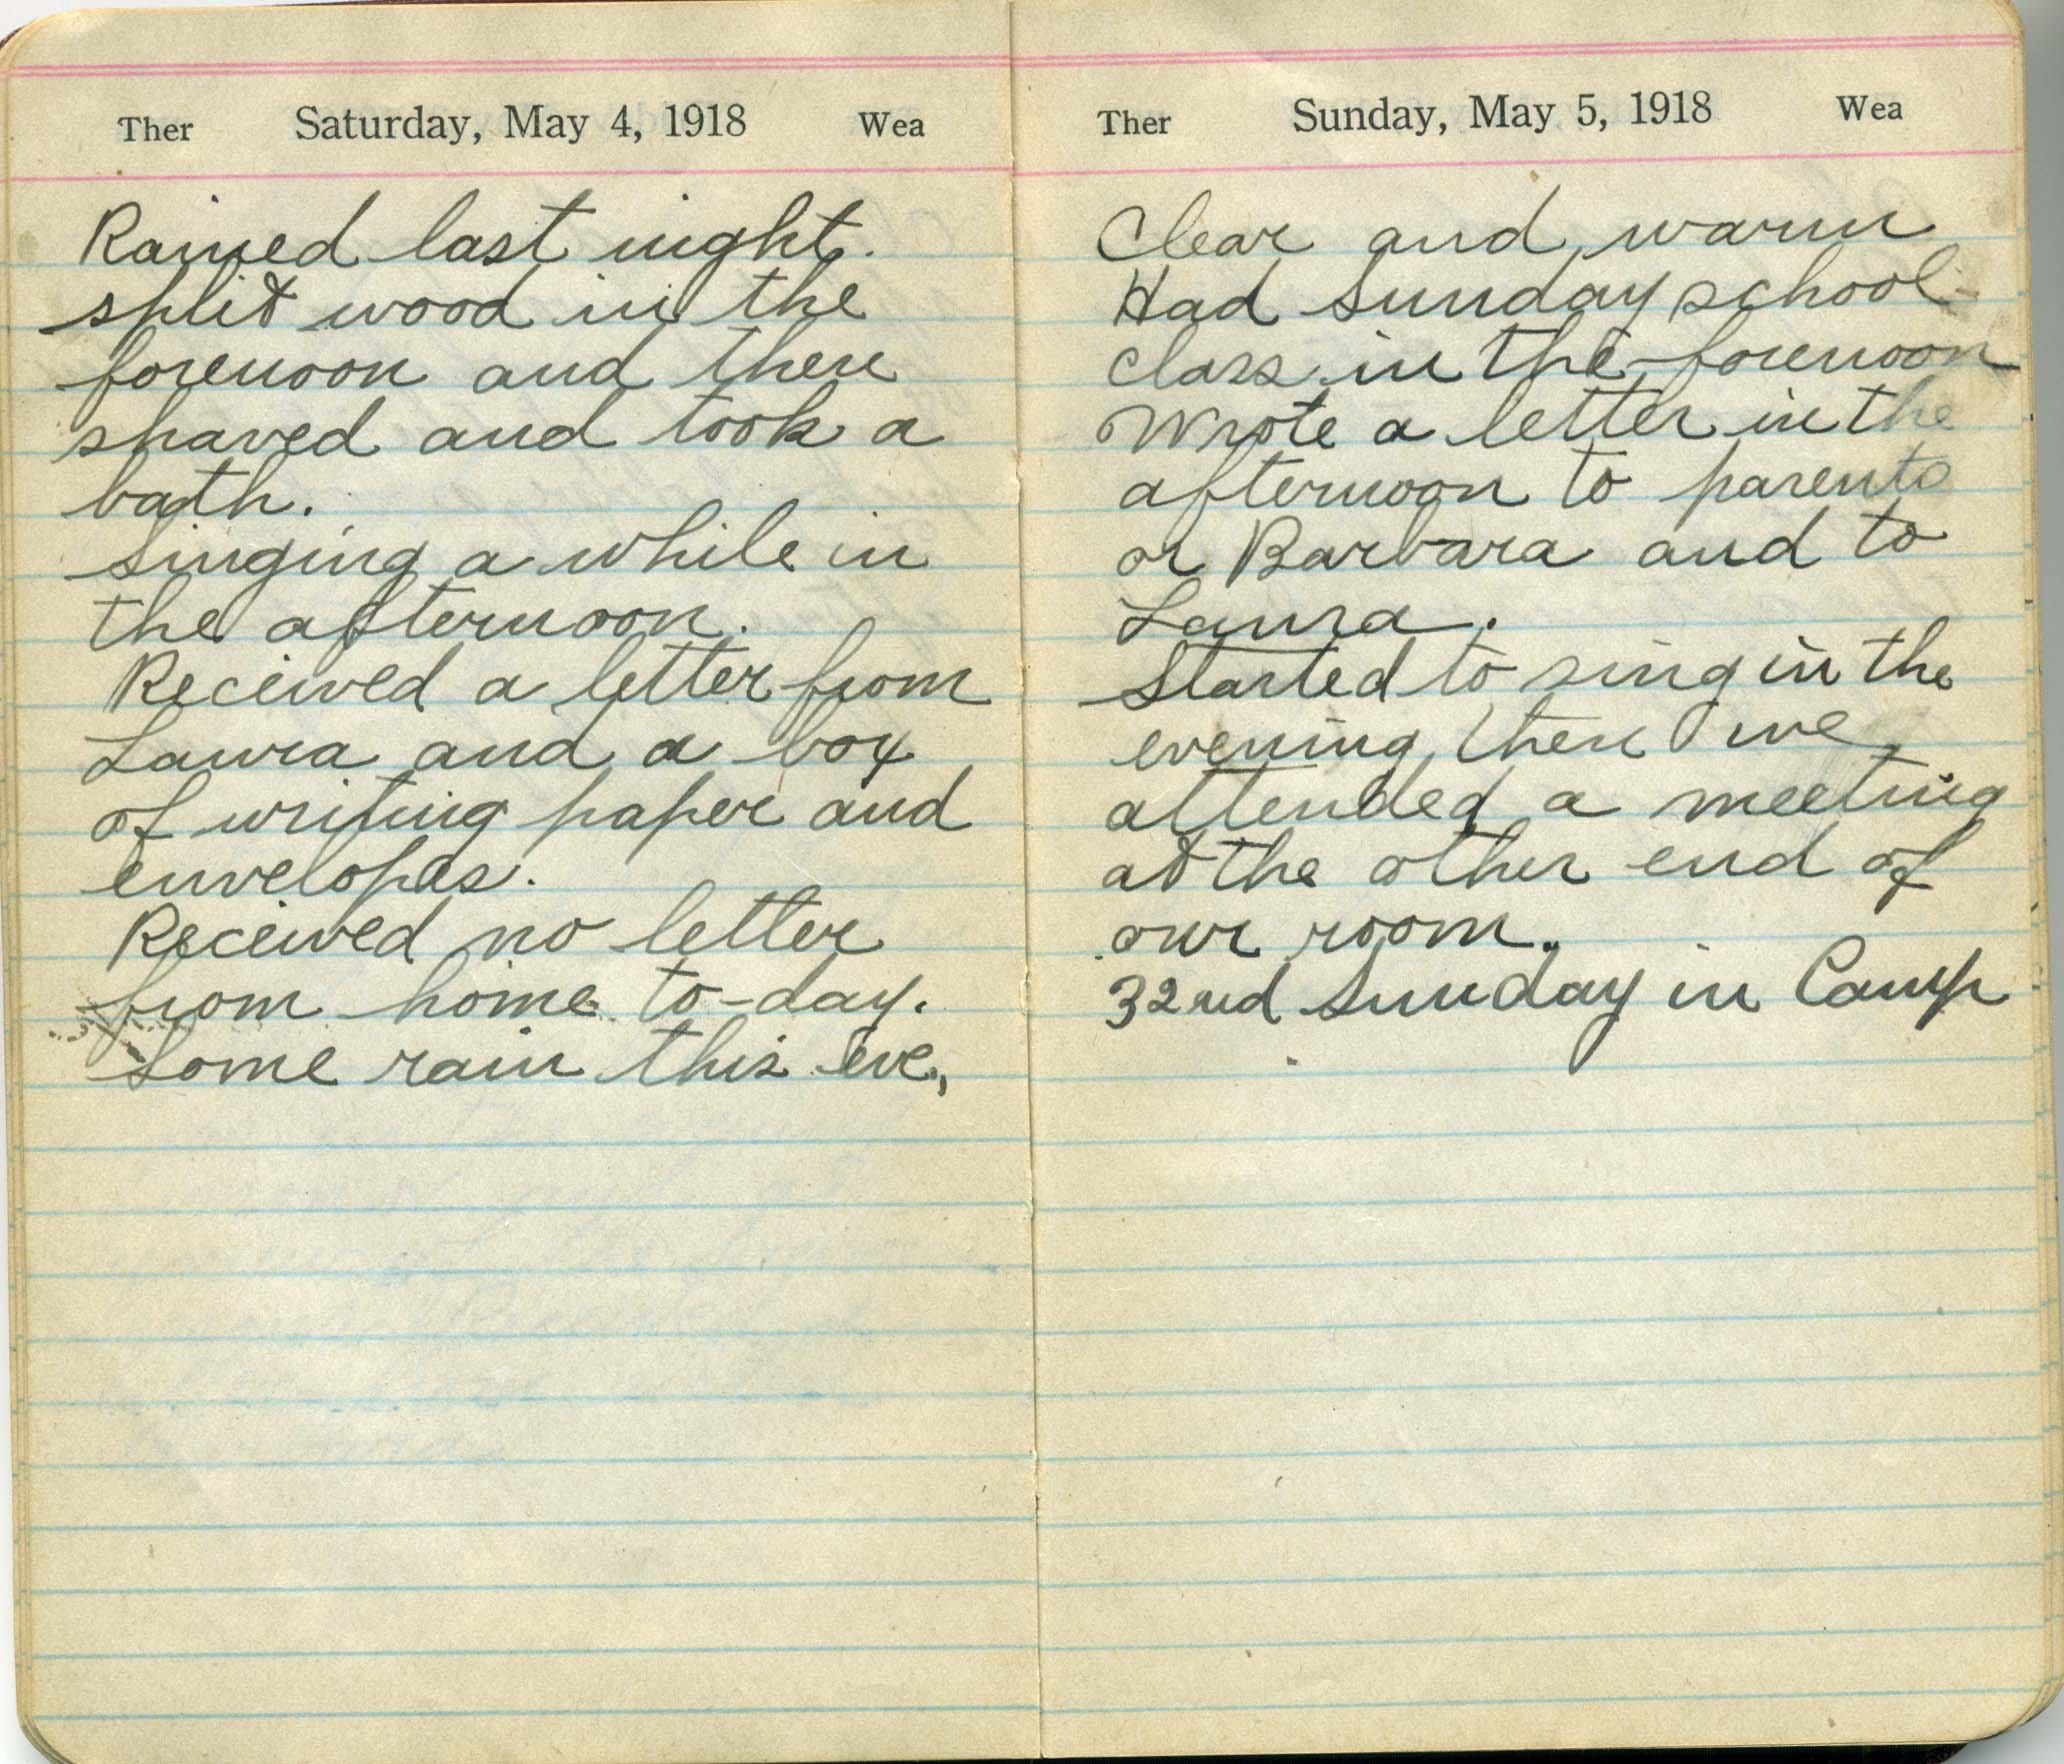 Ther Saturday, May 4, 1918 Wea
Rained last night.
split wood in the
forenoon and then
shaved and took a
bath.
Singing a while in
the afternoon.
Received a letter from
Laura and a box
of writing paper and
envelopes.
Received no letter
from home to-day.
Some rain this eve.,
Ther Sunday, May 5, 1918 Wea
Clear and warm
Had Sunday school
class in the forenoon
Wrote a letter in the
afternoon to parents
or Barbara and to
Laura.
Started to sing in the
evening then we
attended a meeting
at the other end of
our room.
32nd Sunday in Camp